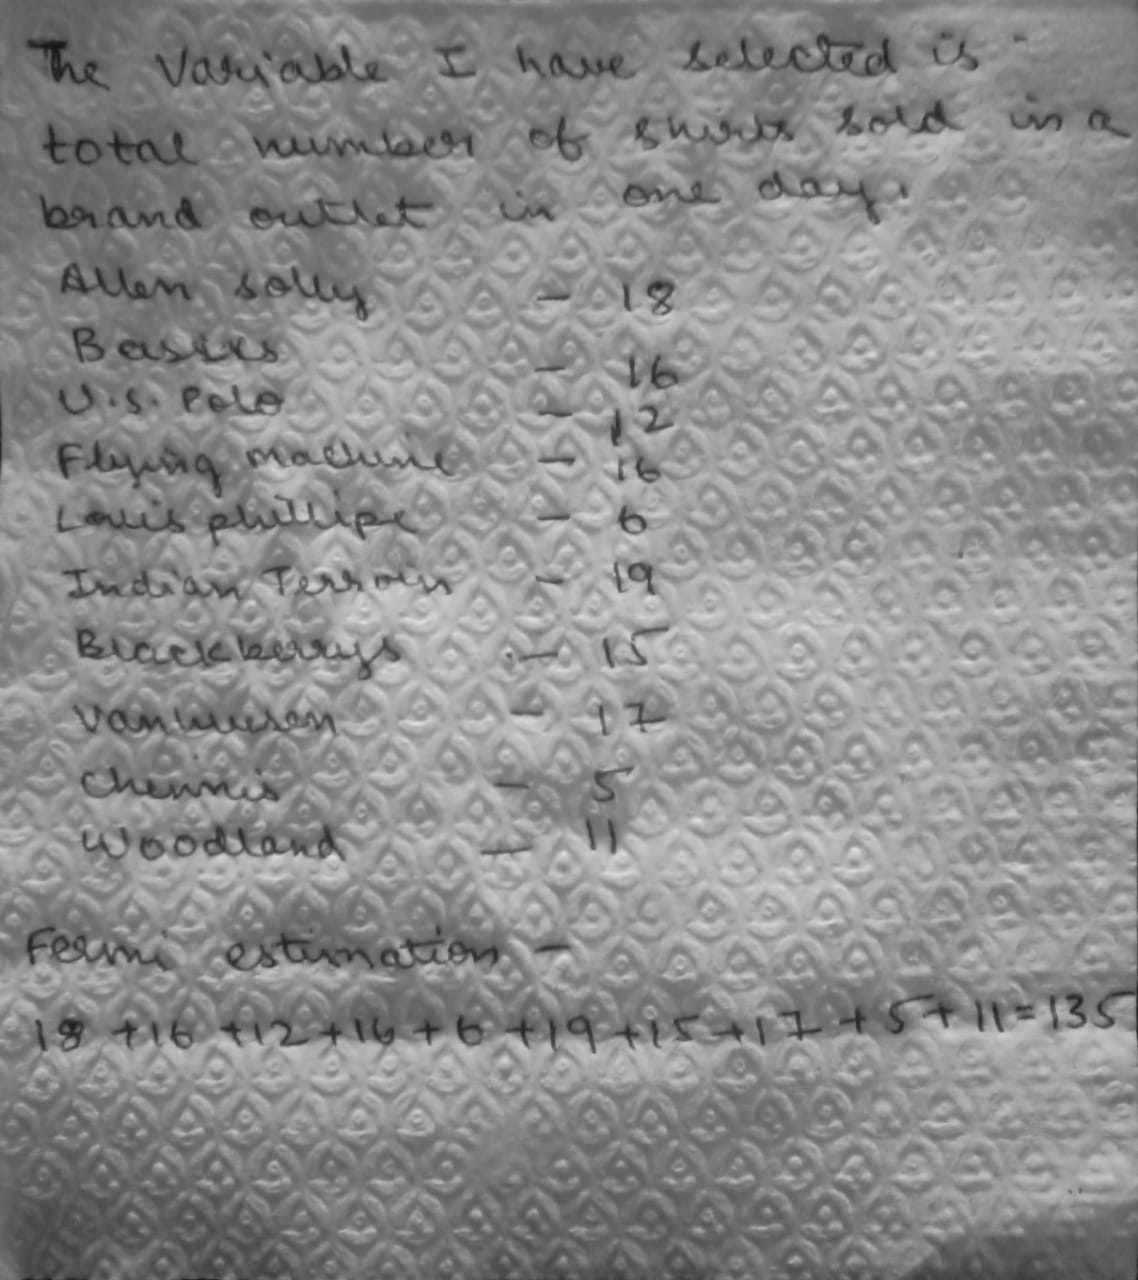 The Variable I have selected is
total number of shirts sold in a
brand outlet in one day.
Allen solly - 18
Basics - 16
U.S. Polo - 12
Flying machine - 16
Louis phillipe - 6
Indian Terrain - 19
Blackberrys - 15
Vanheusen - 17
Chennis - 5
Woodland - 11
Fermi estimation -
18 +16 +12 +16 +6 +19 +15 +17 +5 +11 = 135